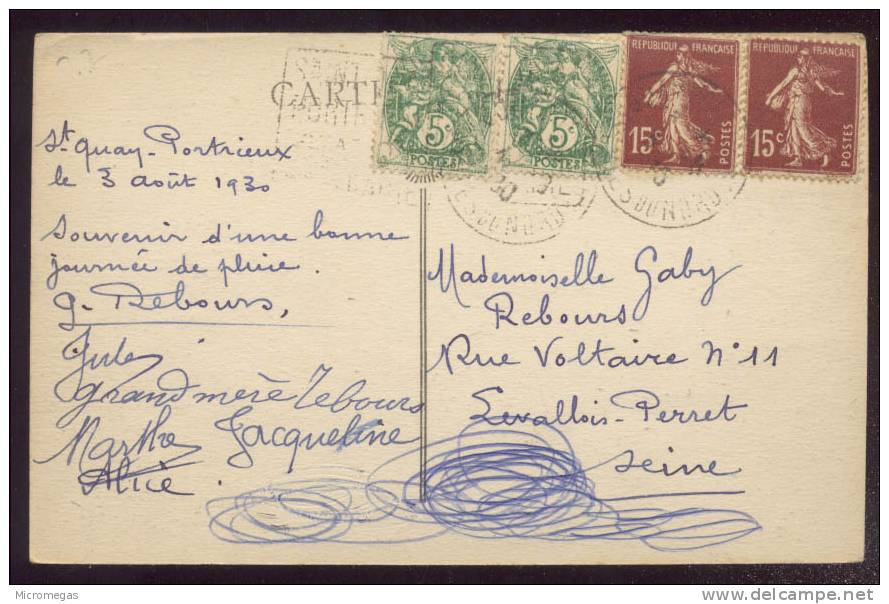 CARTE
5c
POSTES
5c
POSTES
REPUBLIQUE FRANÇAISE
15c
POSTES
REPUBLIQUE FRANÇAISE
15c
POSTES
SAINT
CÔTES DU NORD
St Quay-Portrieux
le 3 août 1930
Souvenir d'une bonne
journée de pluie.
G. Rebours,
Jules
grand mère Rebours
Marthe Jacqueline
Alice.
Mademoiselle Gaby
Rebours
Rue Voltaire N° 11
Levallois-Perret
Seine
Micromegas
www.delcampe.net